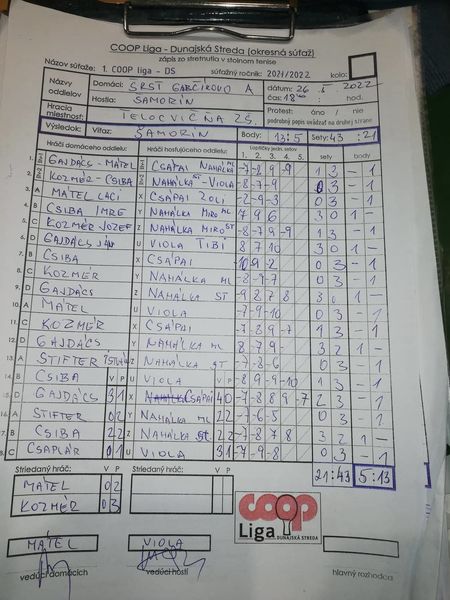 COOP Liga - Dunajská Streda (okresná súťaž)
zápis zo stretnutia v stolnom tenise
Názov súťaže: 1. COOP liga - DS súťažný ročník: 2021/2022 kolo:
Názvy oddielov Domáci: SRŠT GABČÍKOVO A dátum: 26. 5. 2022
Hostia: SAMORÍN čas: 18 hod.
Hracia miestnosť: TELOCVIČŇA ZŠ. Protest: áno / nie
podrobný popis uvádzať na druhej strane
Výsledok: Víťaz: ŠAMORÍN Body: 13:5 Sety: 43 :21
Hráči domáceho oddielu: Hráči hosťujúceho oddielu: Loptičky jedn. setov sety body
1. 2. 3. 4. 5.
1. GAJDÁCS - MATEL CSÁPAI NAHÁLKA ML -7 -8 9 -9 1 3 - 1
2. KOZMÉR - CSIBA NAHÁLKA ST - VIOLA -8 -7 -9 0 3 - 1
3. A MATEL LACI X CSÁPAI ZOLI -2 -9 -3 0 3 - 1
4. B CSIBA IMRE Y NAHÁLKA MIRO ML 7 9 6 3 0 1 -
5. C KOZMÉR JOZEF Z NAHÁLKA MIRO ST -8 -7 9 -9 1 3 - 1
6. D GAJDÁCS JÁN U VIOLA TIBI 8 7 10 3 0 1 -
7. B CSIBA X CSÁPAI -10 -9 -2 0 3 - 1
8. C KOZMÉR Y NAHÁLKA ML -8 -9 -7 0 3 - 1
9. D GAJDÁCS Z NAHÁLKA ST -9 8 7 8 3 1 -
10. A MATEL U VIOLA -7 -9 -10 0 3 - 1
11. C KOZMÉR X CSÁPAI -7 -8 9 -7 1 3 - 1
12. D GAJDÁCS Y NAHÁLKA ML 3 2 1 -
13. A STIFTER Z NAHÁLKA ST -7 -8 -6 0 3 - 1
14. B CSIBA V P U VIOLA V P -8 9 -9 -10 1 3 - 1
15. D GAJDÁCS 3 1 X CSÁPAI 4 0 -7 -8 8 9 -7 2 3 - 1
16. A STIFTER 0 2 Y NAHÁLKA ML 2 2 -7 -6 -5 0 3 - 1
17. B CSIBA 2 2 Z NAHÁLKA ST. 2 2 -7 8 7 8 3 1 -
18. C CSAPLÁR 0 1 U VIOLA 3 1 -7 -9 -8 0 3 - 1
Striedaný hráč: V P Striedaný hráč: V P 21:43 5:13
MATEL 0 2
KOZMÉR 0 3
COOP
Liga DUNAJSKÁ STREDA
MATEL VIOLA
vedúci domácich vedúci hostí hlavný rozhodca